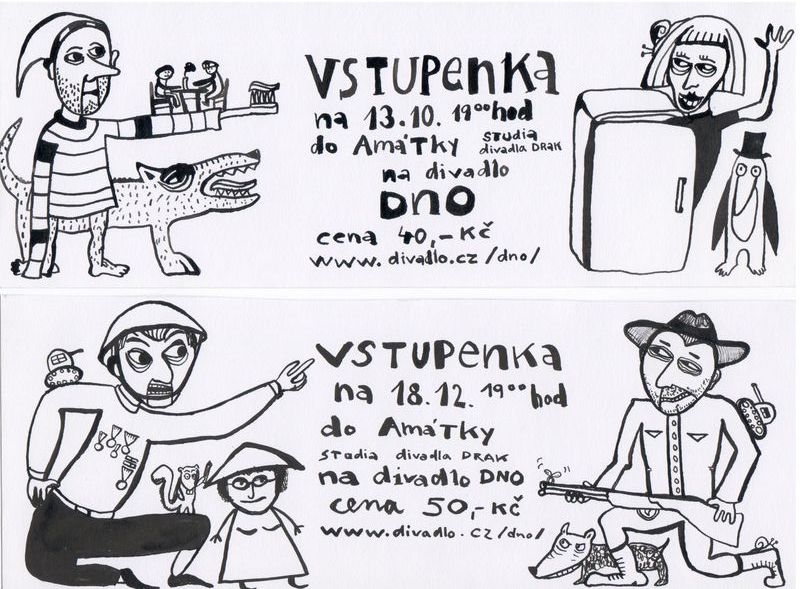 VSTUPENKA
na 13.10. 19⁰⁰ hod
do AmáTky STudia
divadla DRAK
na divadlo
DNO
cena 40,- Kč
www.divadlo.cz/dno/
VSTUPENKA
na 18.12. 19⁰⁰ hod
do AmáTky
STudia divadla DRAK
na divadlo DNO
cena 50,- Kč
www.divadlo.cz/dno/